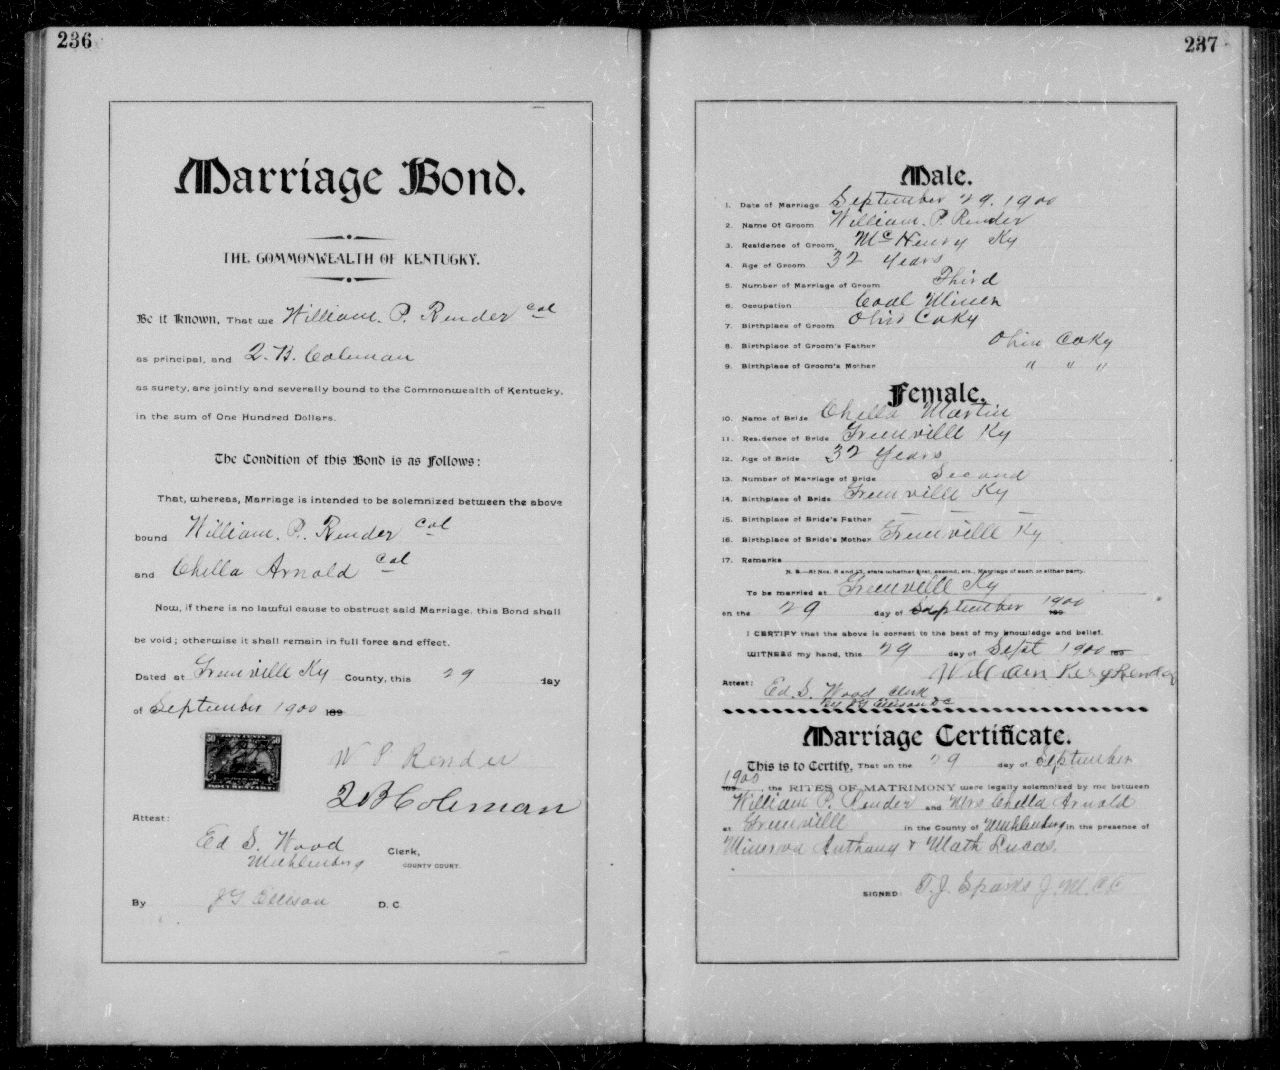 236
Marriage Bond.
THE COMMONWEALTH OF KENTUCKY.
Be it Known, That we William. P. Render col
as principal, and Q. B. Coleman
as surety, are jointly and severally bound to the Commonwealth of Kentucky,
in the sum of One Hundred Dollars.
The Condition of this Bond is as Follows:
That, whereas, Marriage is intended to be solemnized between the above
bound William. P. Render col
and Chella Arnold col
Now, if there is no lawful cause to obstruct said Marriage, this Bond shall
be void; otherwise it shall remain in full force and effect.
Dated at Greenville Ky County, this 29 day
of September 1900 189
W P Render
Q B Coleman
Attest:
Ed. S. Wood Clerk,
Muhlenburg COUNTY COURT.
By J G Ellison D. C.
237
Male.
1. Date of Marriage September 29. 1900
2. Name Of Groom William. P. Render
3. Residence of Groom McHenry Ky
4. Age of Groom 32 Years
5. Number of Marriage of Groom Third
6. Occupation Coal Miner
7. Birthplace of Groom Ohio Co Ky
8. Birthplace of Groom's Father Ohio Co Ky
9. Birthplace of Groom's Mother " " "
Female.
10. Name of Bride Chella Martin
11. Residence of Bride Greenville Ky
12. Age of Bride 32 Years
13. Number of Marriage of Bride Second
14. Birthplace of Bride Greenville Ky
15. Birthplace of Bride's Father — — —
16. Birthplace of Bride's Mother Greenville Ky
17. Remarks
N. B.—At Nos. 5 and 13, state whether first, second, etc., Marriage of each or either party.
To be married at Greenville Ky
on the 29 day of September 1900 189
I CERTIFY that the above is correct to the best of my knowledge and belief.
WITNESS my hand, this 29 day of Sept 1900 189
William Render
Attest: Ed. S. Wood Clerk
By J G Ellison D C
Marriage Certificate.
This is to Certify, That on the 29 day of September
1900
189 , the RITES OF MATRIMONY were legally solemnized by me between
William P. Render and Mrs Chella Arnold
at Greenville in the County of Muhlenburg in the presence of
Minerva Anthony & Math Lucas.
SIGNED: T. J. Sparks J. M. C C